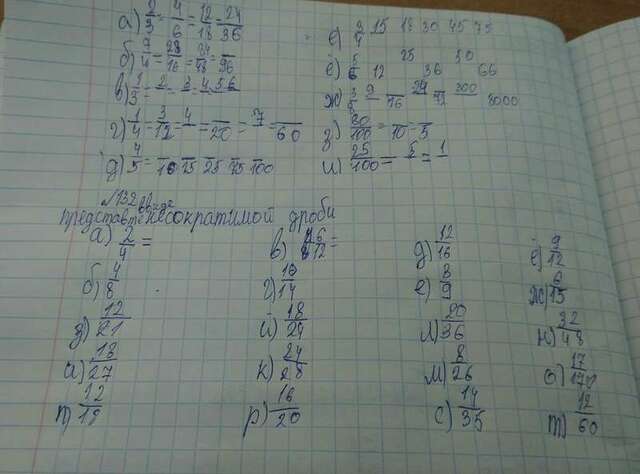 а) 2/3 = 4/6 = 12/18 = 24/36
б) 9/4 = 28/16 = /48 = /96
в) 1/3 = 2 = 3 = 4 56
г) 1/4 = 3/12 = 4/ = /20 = 7/ = /60
д) 4/5 = /10 /15 /25 /75 /100
е) 3/4 15 18 30 45 75
ё) 5/6 12 25 36 50 66
ж) 3/8 9/ /16 24/ /72 300/ 8000
з) 80/100 = /10 = /5
и) 25/100 = 5/ = 1/
№132
представте несократимой дроби
а) 2/4 =
в) 6/12 =
д) 12/16
ё) 9/12
б) 4/8
г) 10/14
е) 3/9
ж) 6/15
з) 12/21
й) 18/24
л) 20/36
н) 32/48
и) 18/27
к) 24/28
м) 8/26
о) 17/170
п) 12/19
р) 16/20
с) 14/35
т) 12/60